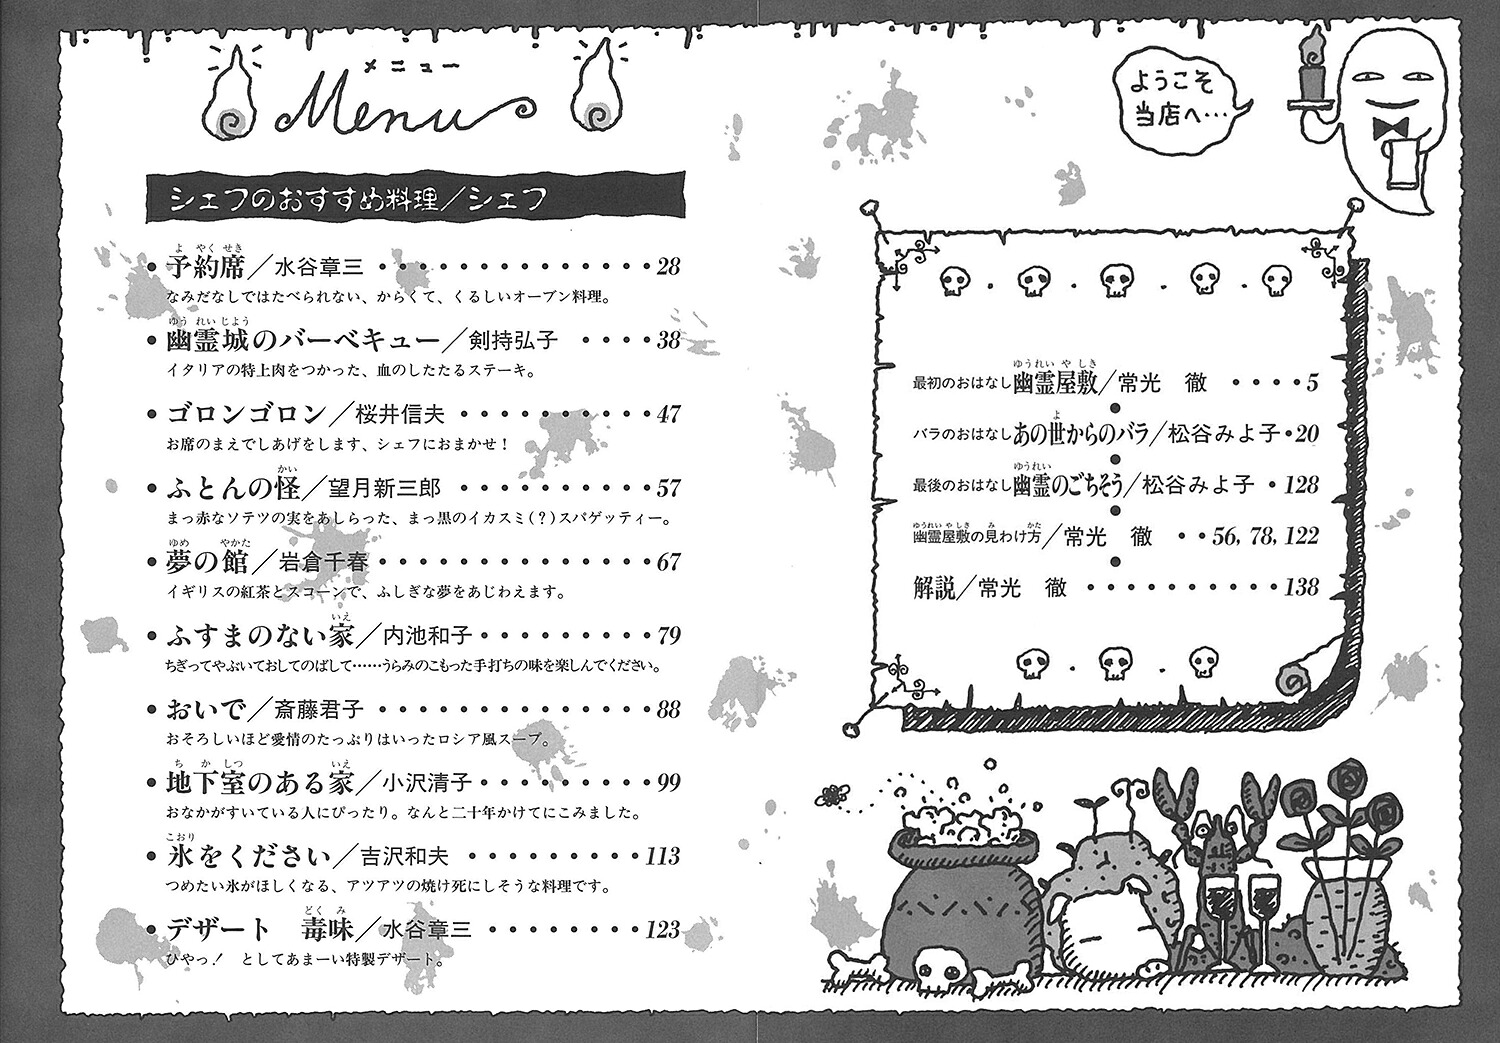 メニュー
Menu
シェフのおすすめ料理／シェフ
よやくせき
●予約席／水谷章三 ・・・・・・・・・・・・・・28
なみだなしではたべられない、からくて、くるしいオーブン料理。
ゆうれいじょう
●幽霊城のバーベキュー／剣持弘子 ・・・・38
イタリアの特上肉をつかった、血のしたたるステーキ。
●ゴロンゴロン／桜井信夫 ・・・・・・・・・・47
お席のまえでしあげをします、シェフにおまかせ！
かい
●ふとんの怪／望月新三郎 ・・・・・・・・・・57
まっ赤なソテツの実をあしらった、まっ黒のイカスミ（？）スパゲッティー。
ゆめ やかた
●夢の館／岩倉千春・・・・・・・・・・・・・・67
イギリスの紅茶とスコーンで、ふしぎな夢をあじわえます。
いえ
●ふすまのない家／内池和子・・・・・・・・・79
ちぎってやぶいておしてのばして……うらみのこもった手打ちの味を楽しんでください。
●おいで／斎藤君子 ・・・・・・・・・・・・・・88
おそろしいほど愛情のたっぷりはいったロシア風スープ。
ちかしつ いえ
●地下室のある家／小沢清子・・・・・・・・・99
おなかがすいている人にぴったり。なんと二十年かけてにこみました。
こおり
●氷をください／吉沢和夫 ・・・・・・・・・113
つめたい氷がほしくなる、アツアツの焼け死にしそうな料理です。
どくみ
●デザート　毒味／水谷章三 ・・・・・・・・123
ひやっ！　としてあまーい特製デザート。
ようこそ
当店へ…
ゆうれいやしき
最初のおはなし幽霊屋敷／常光　徹 ・・・・5
よ
バラのおはなしあの世からのバラ／松谷みよ子・20
ゆうれい
最後のおはなし幽霊のごちそう／松谷みよ子 ・128
ゆうれいやしき み かた
幽霊屋敷の見わけ方／常光　徹 ・・56, 78, 122
解説／常光　徹 ・・・・・・・・・・138